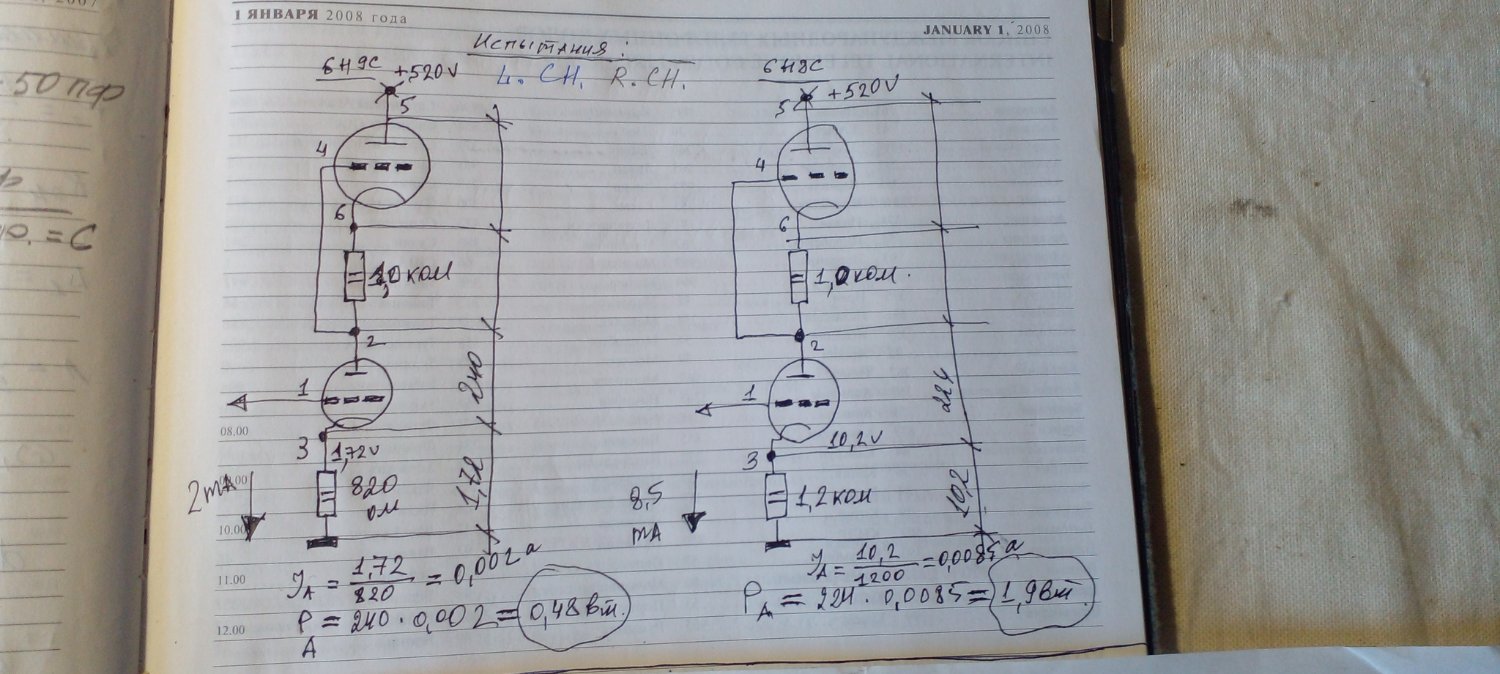 1 ЯНВАРЯ 2008 года
JANUARY 1, 2008
Испытания:
L. CH. R. CH.
50 пф
= C
6Н9С
+520V
5
4
6
1,0 ком
2
1
240
3
1,72V
2mA
820
ом
1,72
JA = 1,72 / 820 = 0,002 а
PA = 240 · 0,002 = 0,48 вт.
6Н8С
+520V
5
4
6
1,0 ком.
2
1
224
3
10,2V
8,5
mA
1,2 ком
10,2
JA = 10,2 / 1200 = 0,0085 а
PA = 224 · 0,0085 = 1,9 вт
08.00
10.00
11.00
12.00